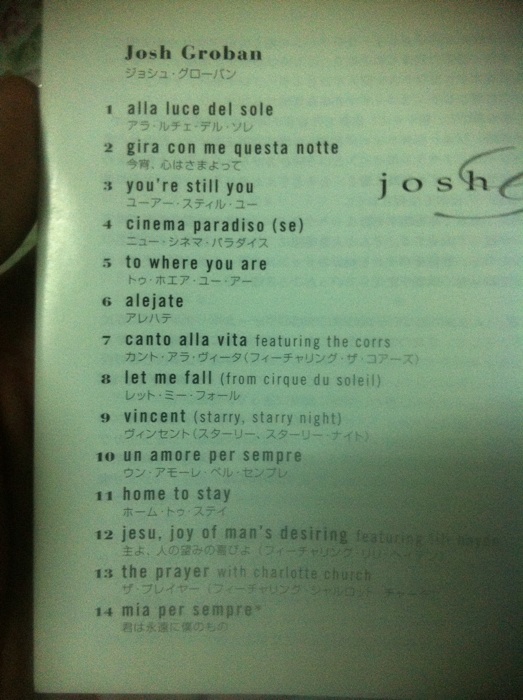 Josh Groban
ジョシュ・グローバン
1 alla luce del sole
アラ・ルチェ・デル・ソレ
2 gira con me questa notte
今宵、心はさまよって
3 you're still you
ユーアー・スティル・ユー
josh
4 cinema paradiso (se)
ニュー・シネマ・パラダイス
5 to where you are
トゥ・ホエア・ユー・アー
6 alejate
アレハテ
7 canto alla vita featuring the corrs
カント・アラ・ヴィータ(フィーチャリング・ザ・コアーズ)
8 let me fall (from cirque du soleil)
レット・ミー・フォール
9 vincent (starry, starry night)
ヴィンセント(スターリー、スターリー・ナイト)
10 un amore per sempre
ウン・アモーレ・ペル・センプレ
11 home to stay
ホーム・トゥ・ステイ
12 jesu, joy of man's desiring featuring lili haydn
主よ、人の望みの喜びよ(フィーチャリング・リリ・
13 the prayer with charlotte church
ザ・プレイヤー(フィーチャリング・シャルロット・チャーチ)
14 mia per sempre*
君は永遠に僕のもの